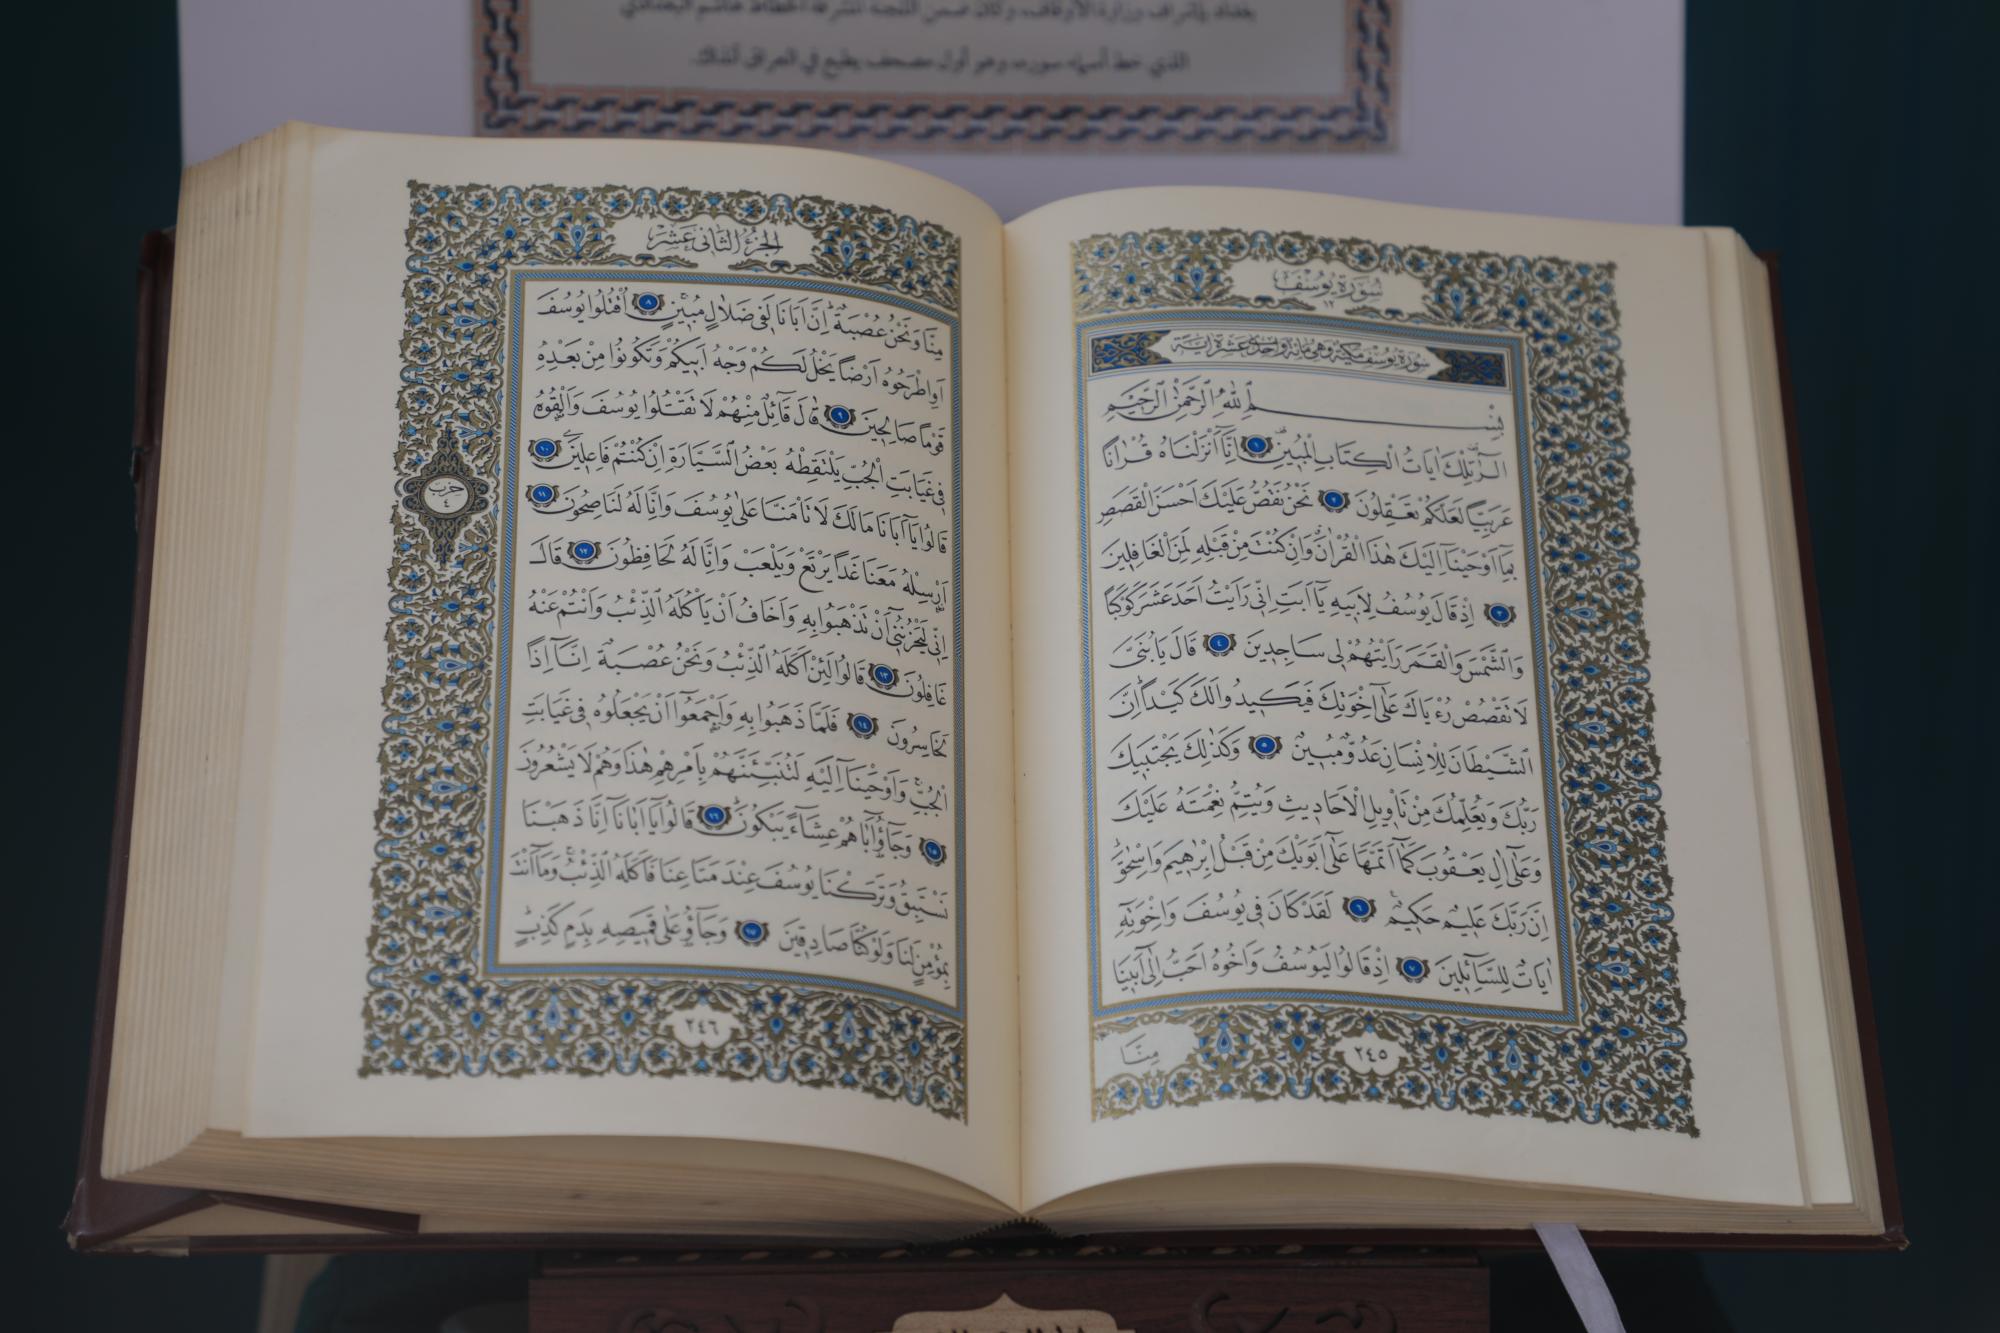 بغداد بإشراف وزارة الأوقاف، وكان ضمن اللجنة المشرفة الخطاط هاشم البغدادي
الذي خط أسماء سوره، وهو أول مصحف يطبع في العراق آنذاك.
سُورَةُ يُوسُفَ
١٢
سُورَةُ يُوسُفَ مَكِّيَّةٌ وَهِيَ مِائَةٌ وَاِحْدٰى عَشْرَةَ اٰيَةً
بِسْمِ اللّٰهِ الرَّحْمٰنِ الرَّحِيمِ
الٓرٰ تِلْكَ اٰيَاتُ الْكِتَابِ الْمُبٖينِ ١ اِنَّٓا اَنْزَلْنَاهُ قُرْاٰنًا
عَرَبِيًّا لَعَلَّكُمْ تَعْقِلُونَ ٢ نَحْنُ نَقُصُّ عَلَيْكَ اَحْسَنَ الْقَصَصِ
بِمَٓا اَوْحَيْنَٓا اِلَيْكَ هٰذَا الْقُرْاٰنَ وَاِنْ كُنْتَ مِنْ قَبْلِهٖ لَمِنَ الْغَافِلٖينَ
٣ اِذْ قَالَ يُوسُفُ لِاَبٖيهِ يَٓا اَبَتِ اِنّٖى رَاَيْتُ اَحَدَ عَشَرَ كَوْكَبًا
وَالشَّمْسَ وَالْقَمَرَ رَاَيْتُهُمْ لٖى سَاجِدٖينَ ٤ قَالَ يَا بُنَىَّ
لَا تَقْصُصْ رُءْيَاكَ عَلٰٓى اِخْوَتِكَ فَيَكٖيدُوا لَكَ كَيْدًا اِنَّ
الشَّيْطَانَ لِلْاِنْسَانِ عَدُوٌّ مُبٖينٌ ٥ وَكَذٰلِكَ يَجْتَبٖيكَ
رَبُّكَ وَيُعَلِّمُكَ مِنْ تَأْوٖيلِ الْاَحَادٖيثِ وَيُتِمُّ نِعْمَتَهُ عَلَيْكَ
وَعَلٰٓى اٰلِ يَعْقُوبَ كَمَٓا اَتَمَّهَا عَلٰٓى اَبَوَيْكَ مِنْ قَبْلُ اِبْرٰهٖيمَ وَاِسْحٰقَ
اِنَّ رَبَّكَ عَلٖيمٌ حَكٖيمٌ ٦ لَقَدْ كَانَ فٖى يُوسُفَ وَاِخْوَتِهٖٓ
اٰيَاتٌ لِلسَّٓائِلٖينَ ٧ اِذْ قَالُوا لَيُوسُفُ وَاَخُوهُ اَحَبُّ اِلٰٓى اَبٖينَا
٢٤٥
مِنَّا
الجُزْءُ الثَّانٖى عَشَرَ
مِنَّا وَنَحْنُ عُصْبَةٌ اِنَّ اَبَانَا لَفٖى ضَلَالٍ مُبٖينٍ ٨ اُقْتُلُوا يُوسُفَ
اَوِ اطْرَحُوهُ اَرْضًا يَخْلُ لَكُمْ وَجْهُ اَبٖيكُمْ وَتَكُونُوا مِنْ بَعْدِهٖ
قَوْمًا صَالِحٖينَ ٩ قَالَ قَٓائِلٌ مِنْهُمْ لَا تَقْتُلُوا يُوسُفَ وَاَلْقُوهُ
فٖى غَيَابَتِ الْجُبِّ يَلْتَقِطْهُ بَعْضُ السَّيَّارَةِ اِنْ كُنْتُمْ فَاعِلٖينَ ١٠
قَالُوا يَٓا اَبَانَا مَا لَكَ لَا تَأْمَنَّا عَلٰى يُوسُفَ وَاِنَّا لَهُ لَنَاصِحُونَ ١١
اَرْسِلْهُ مَعَنَا غَدًا يَرْتَعْ وَيَلْعَبْ وَاِنَّا لَهُ لَحَافِظُونَ ١٢ قَالَ
اِنّٖى لَيَحْزُنُنٖٓى اَنْ تَذْهَبُوا بِهٖ وَاَخَافُ اَنْ يَأْكُلَهُ الذِّئْبُ وَاَنْتُمْ عَنْهُ
غَافِلُونَ ١٣ قَالُوا لَئِنْ اَكَلَهُ الذِّئْبُ وَنَحْنُ عُصْبَةٌ اِنَّٓا اِذًا
لَخَاسِرُونَ ١٤ فَلَمَّا ذَهَبُوا بِهٖ وَاَجْمَعُٓوا اَنْ يَجْعَلُوهُ فٖى غَيَابَتِ
الْجُبِّ وَاَوْحَيْنَٓا اِلَيْهِ لَتُنَبِّئَنَّهُمْ بِاَمْرِهِمْ هٰذَا وَهُمْ لَا يَشْعُرُونَ
١٥ وَجَٓاؤُٓ اَبَاهُمْ عِشَٓاءً يَبْكُونَ ١٦ قَالُوا يَٓا اَبَانَٓا اِنَّا ذَهَبْنَا
نَسْتَبِقُ وَتَرَكْنَا يُوسُفَ عِنْدَ مَتَاعِنَا فَاَكَلَهُ الذِّئْبُ وَمَٓا اَنْتَ
بِمُؤْمِنٍ لَنَا وَلَوْ كُنَّا صَادِقٖينَ ١٧ وَجَٓاؤُ عَلٰى قَمٖيصِهٖ بِدَمٍ كَذِبٍ
حِزْبٌ
٤
٢٤٦